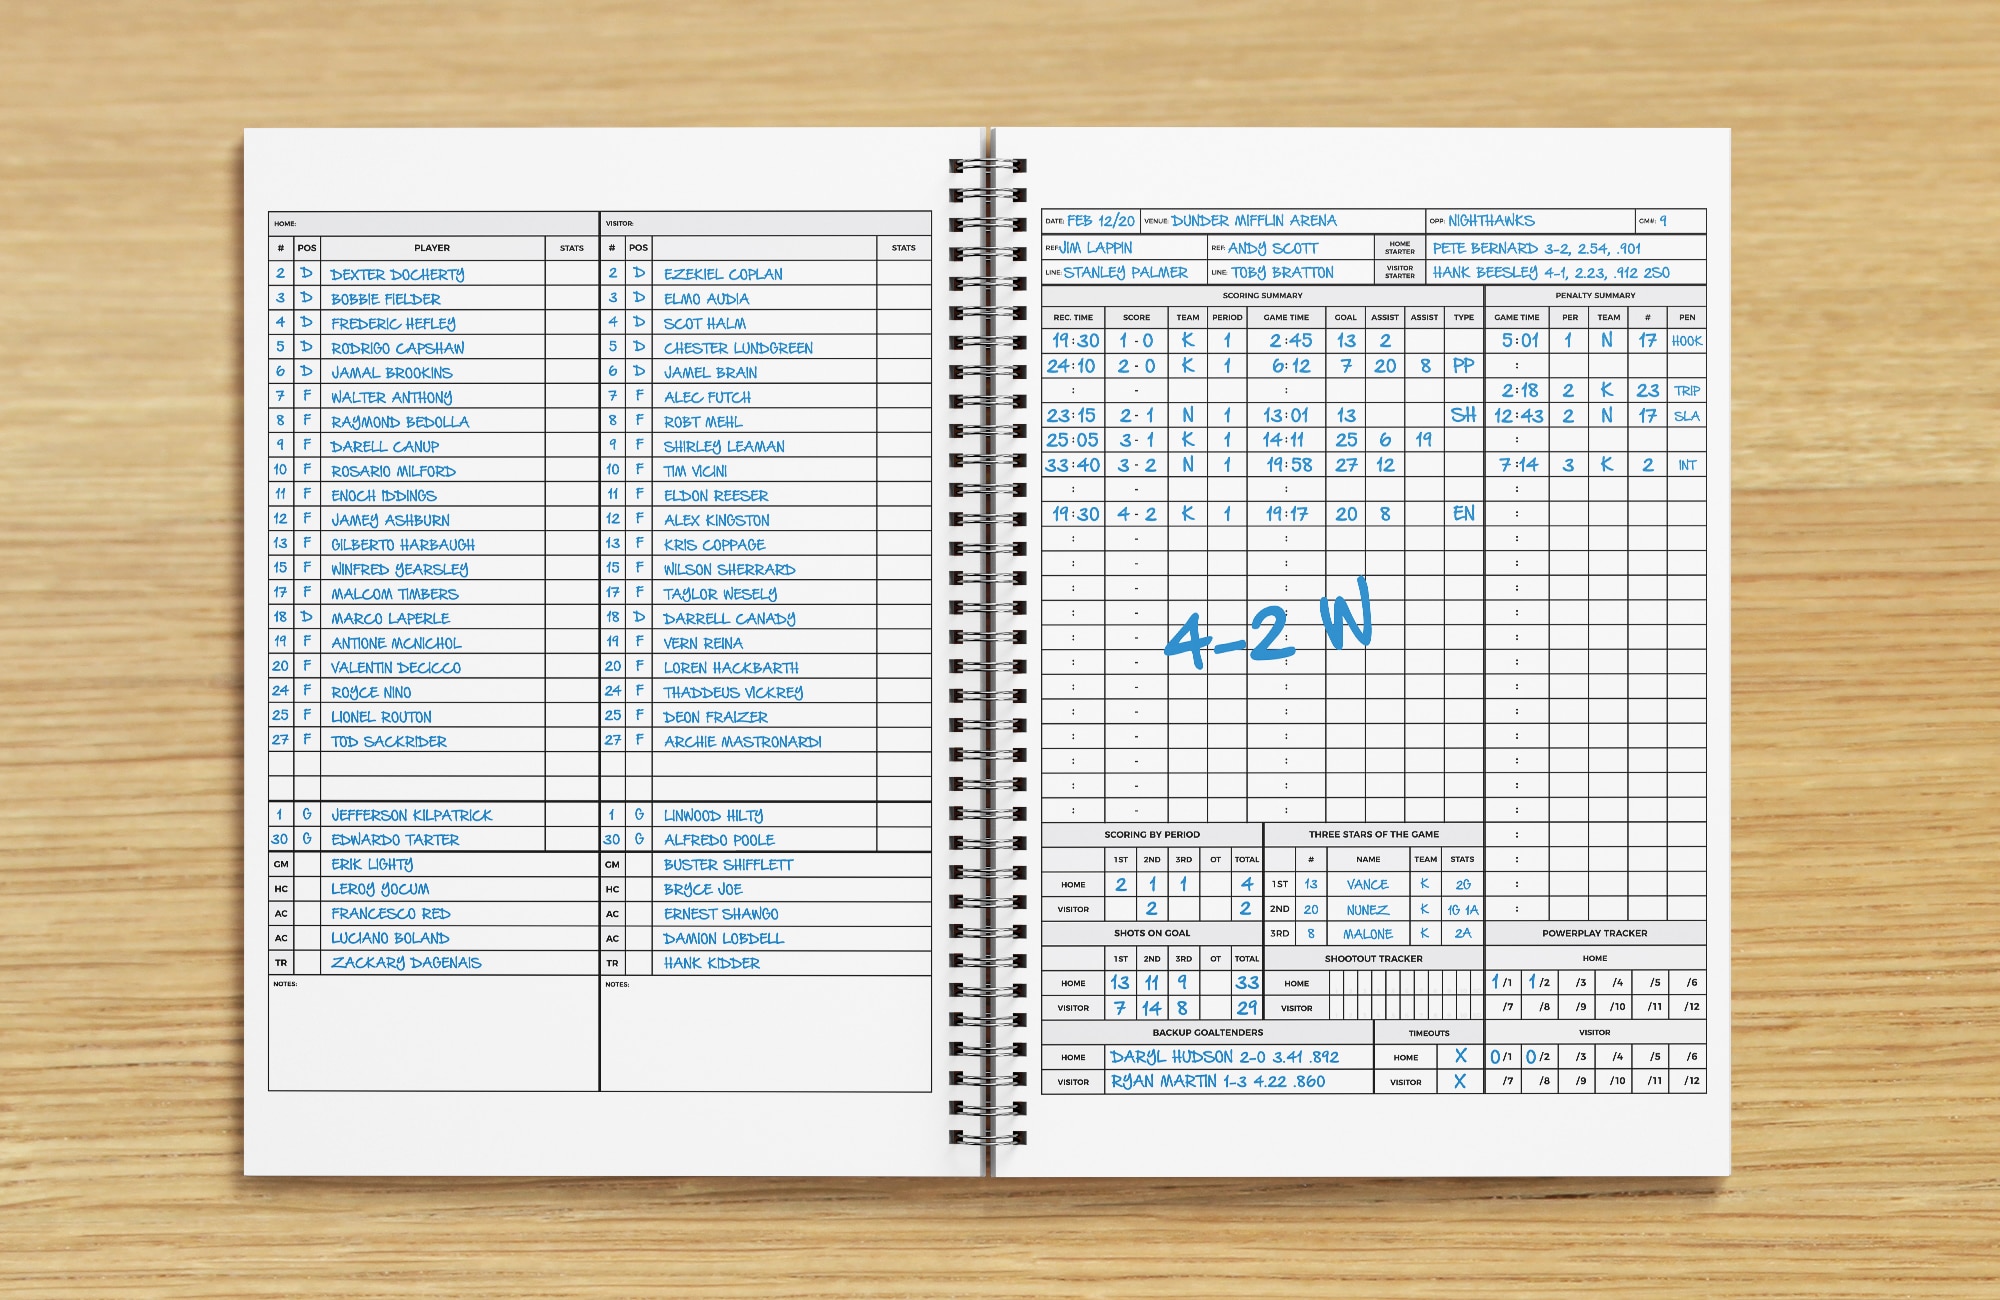 HOME: VISITOR:
# POS PLAYER STATS # POS STATS
2 D DEXTER DOCHERTY 2 D EZEKIEL COPLAN
3 D BOBBIE FIELDER 3 D ELMO AUDIA
4 D FREDERIC HEFLEY 4 D SCOT HALM
5 D RODRIGO CAPSHAW 5 D CHESTER LUNDGREEN
6 D JAMAL BROOKINS 6 D JAMEL BRAIN
7 F WALTER ANTHONY 7 F ALEC FUTCH
8 F RAYMOND BEDOLLA 8 F ROBT MEHL
9 F DARELL CANUP 9 F SHIRLEY LEAMAN
10 F ROSARIO MILFORD 10 F TIM VICINI
11 F ENOCH IDDINGS 11 F ELDON REESER
12 F JAMEY ASHBURN 12 F ALEX KINGSTON
13 F GILBERTO HARBAUGH 13 F KRIS COPPAGE
15 F WINFRED YEARSLEY 15 F WILSON SHERRARD
17 F MALCOM TIMBERS 17 F TAYLOR WESELY
18 D MARCO LAPERLE 18 D DARRELL CANADY
19 F ANTIONE MCNICHOL 19 F VERN REINA
20 F VALENTIN DECICCO 20 F LOREN HACKBARTH
24 F ROYCE NINO 24 F THADDEUS VICKREY
25 F LIONEL ROUTON 25 F DEON FRAIZER
27 F TOD SACKRIDER 27 F ARCHIE MASTRONARDI
1 G JEFFERSON KILPATRICK 1 G LINWOOD HILTY
30 G EDWARDO TARTER 30 G ALFREDO POOLE
GM ERIK LIGHTY GM BUSTER SHIFFLETT
HC LEROY YOCUM HC BRYCE JOE
AC FRANCESCO RED AC ERNEST SHAWGO
AC LUCIANO BOLAND AC DAMION LOBDELL
TR ZACKARY DAGENAIS TR HANK KIDDER
NOTES: NOTES:
DATE: FEB 12/20 VENUE: DUNDER MIFFLIN ARENA OPP: NIGHTHAWKS GM#: 9
REF: JIM LAPPIN REF: ANDY SCOTT HOME STARTER PETE BERNARD 3-2, 2.54, .901
LINE: STANLEY PALMER LINE: TOBY BRATTON VISITOR STARTER HANK BEESLEY 4-1, 2.23, .912 2SO
SCORING SUMMARY PENALTY SUMMARY
REC. TIME SCORE TEAM PERIOD GAME TIME GOAL ASSIST ASSIST TYPE GAME TIME PER TEAM # PEN
19:30 1-0 K 1 2:45 13 2 5:01 1 N 17 HOOK
24:10 2-0 K 1 6:12 7 20 8 PP :
: - : 2:18 2 K 23 TRIP
23:15 2-1 N 1 13:01 13 SH 12:43 2 N 17 SLA
25:05 3-1 K 1 14:11 25 6 19 :
33:40 3-2 N 1 19:58 27 12 7:14 3 K 2 INT
: - : :
19:30 4-2 K 1 19:17 20 8 EN :
4-2 W
SCORING BY PERIOD THREE STARS OF THE GAME
1ST 2ND 3RD OT TOTAL # NAME TEAM STATS
HOME 2 1 1 4 1ST 13 VANCE K 2G
VISITOR 2 2 2ND 20 NUNEZ K 1G 1A
SHOTS ON GOAL 3RD 8 MALONE K 2A POWERPLAY TRACKER
1ST 2ND 3RD OT TOTAL SHOOTOUT TRACKER HOME
HOME 13 11 9 33 HOME 1/1 1/2 /3 /4 /5 /6
VISITOR 7 14 8 29 VISITOR /7 /8 /9 /10 /11 /12
BACKUP GOALTENDERS TIMEOUTS VISITOR
HOME DARYL HUDSON 2-0 3.41 .892 HOME X 0/1 0/2 /3 /4 /5 /6
VISITOR RYAN MARTIN 1-3 4.22 .860 VISITOR X /7 /8 /9 /10 /11 /12